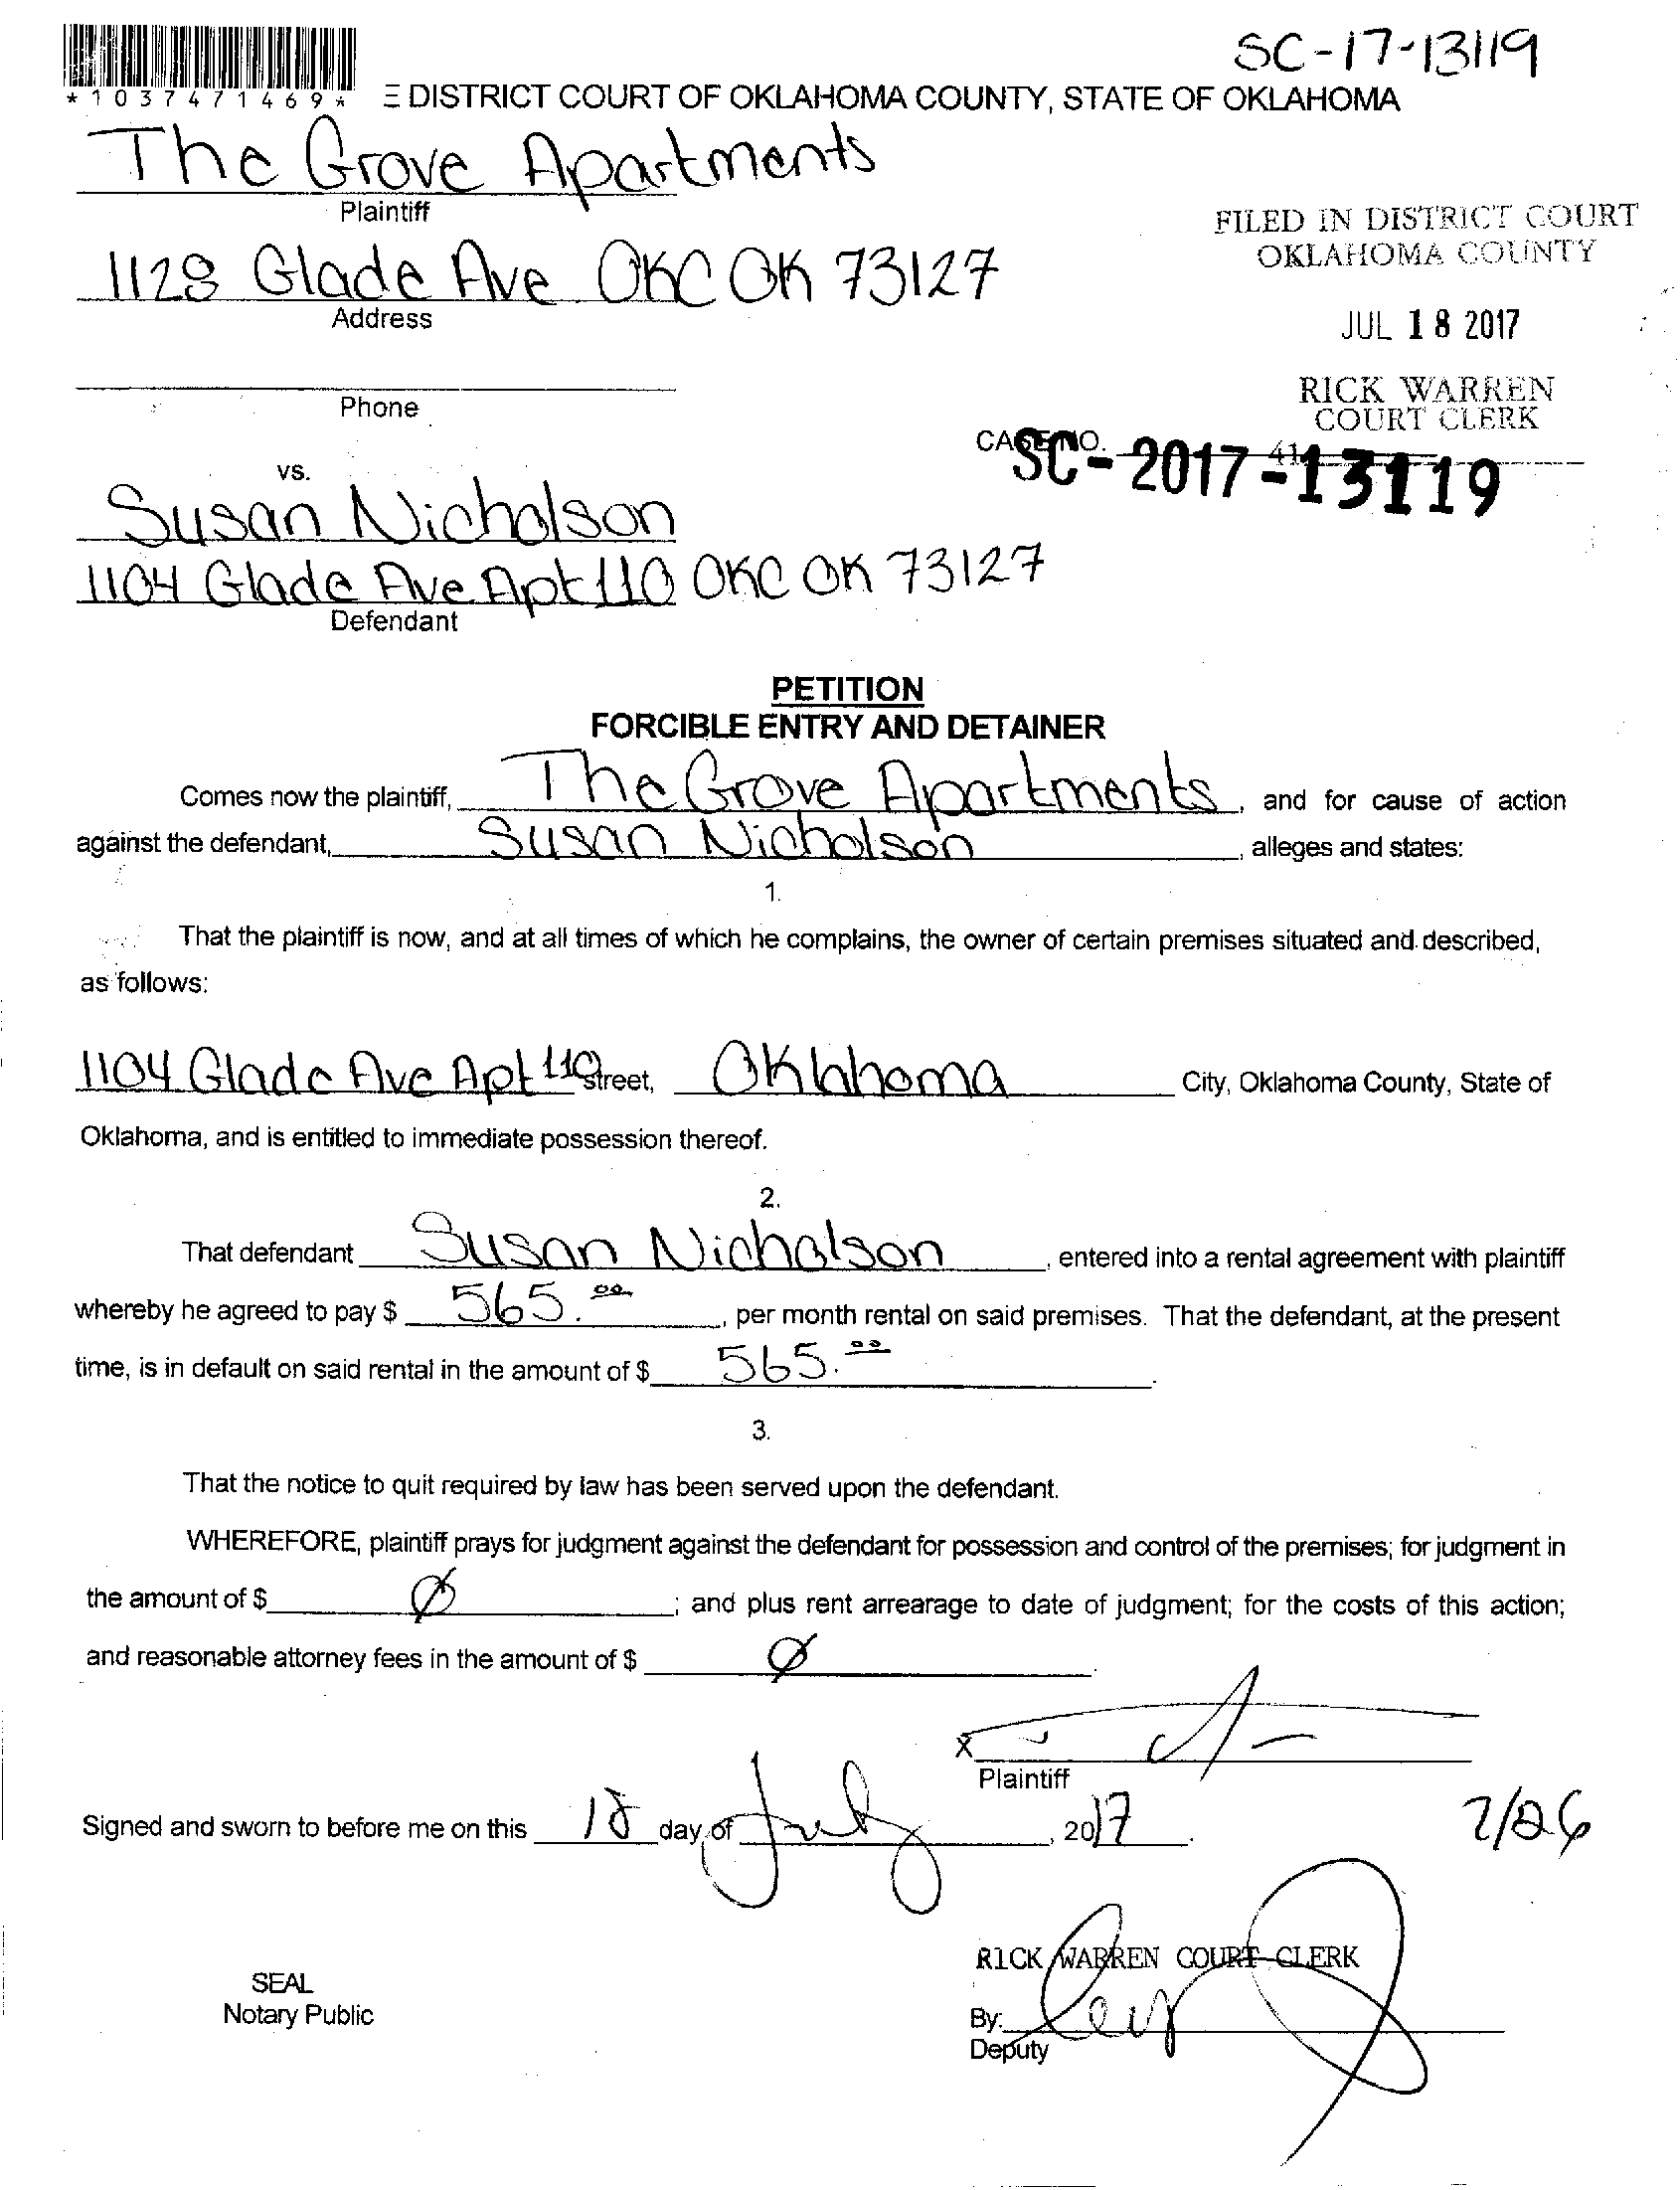 SC-17-13119
*1037471469*
DISTRICT COURT OF OKLAHOMA COUNTY, STATE OF OKLAHOMA
The Grove Apartments
Plaintiff
FILED IN DISTRICT COURT
OKLAHOMA COUNTY
1128 Glade Ave OKC OK 73127
Address
JUL 18 2017
RICK WARREN
COURT CLERK
Phone
CASE NO.
SC-2017-13119
vs.
Susan Nicholson
1104 Glade Ave Apt 110 OKC OK 73127
Defendant
PETITION
FORCIBLE ENTRY AND DETAINER
Comes now the plaintiff, The Grove Apartments, and for cause of action
against the defendant, Susan Nicholson, alleges and states:
1.
That the plaintiff is now, and at all times of which he complains, the owner of certain premises situated and described,
as follows:
1104 Glade Ave Apt 110 Street, Oklahoma City, Oklahoma County, State of
Oklahoma, and is entitled to immediate possession thereof.
2.
That defendant Susan Nicholson, entered into a rental agreement with plaintiff
whereby he agreed to pay $ 565.00, per month rental on said premises. That the defendant, at the present
time, is in default on said rental in the amount of $ 565.00.
3.
That the notice to quit required by law has been served upon the defendant.
WHEREFORE, plaintiff prays for judgment against the defendant for possession and control of the premises; for judgment in
the amount of $ Ø; and plus rent arrearage to date of judgment; for the costs of this action;
and reasonable attorney fees in the amount of $ Ø.
X
Plaintiff
Signed and sworn to before me on this 18 day of July, 2017.
7/26
RICK WARREN COURT CLERK
SEAL
Notary Public
By:
Deputy